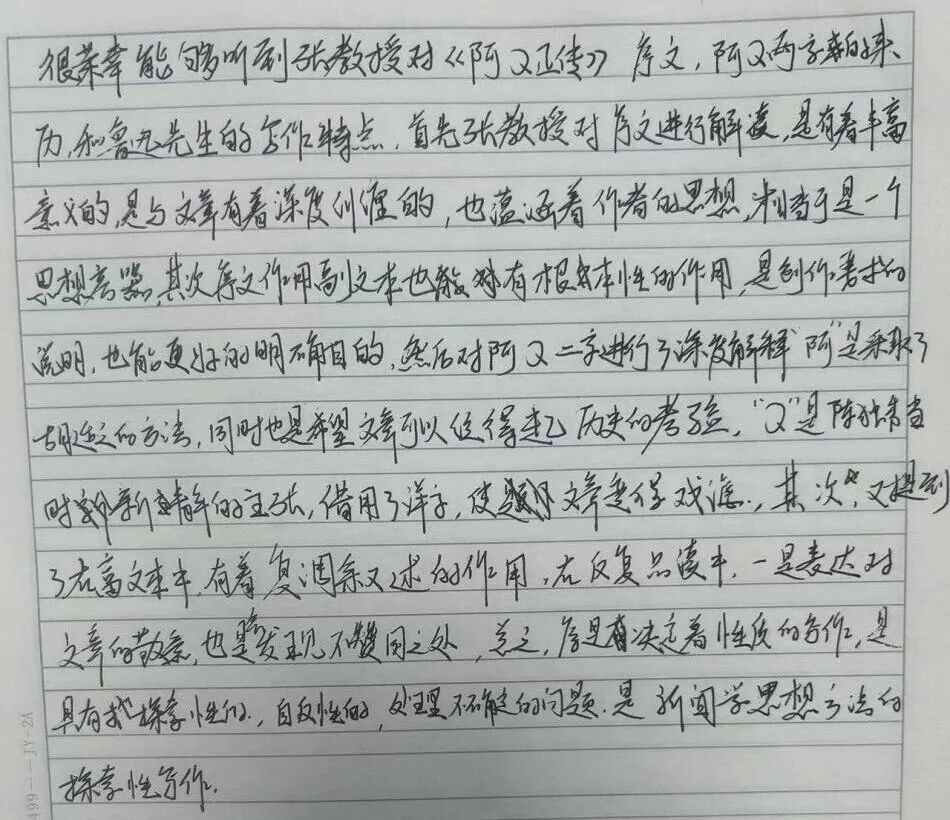 很荣幸能够听到张教授对《阿Q正传》序文,阿Q两字的来
历,和鲁迅先生的写作特点,首先张教授对序文进行解读,是有着丰富
意义的,是与文章有着深度纠缠的,也蕴涵着作者的思想,相当于是一个
思想容器,其次序文作用副文本也能够有根本性的作用,是创作者的
说明,也能更好的明确目的,然后对阿Q二字进行了深度解释"阿"是采取了
胡适之的方法,同时也是希望文章可以经得起历史的考验,"Q"是陈独秀当
时新青年的主张,借用了洋字,使文章显得戏谑,其次,又提到
了在高文本中,有着复调叙述的作用,在反复品读中,一是表达对
文章的敬意,也是发现不赞同之处,总之,序是决定着性质的写作,是
具有探索性的,自反性的,处理不确定的问题.是新闻学思想方法的
探索性写作.
499--JY-2A